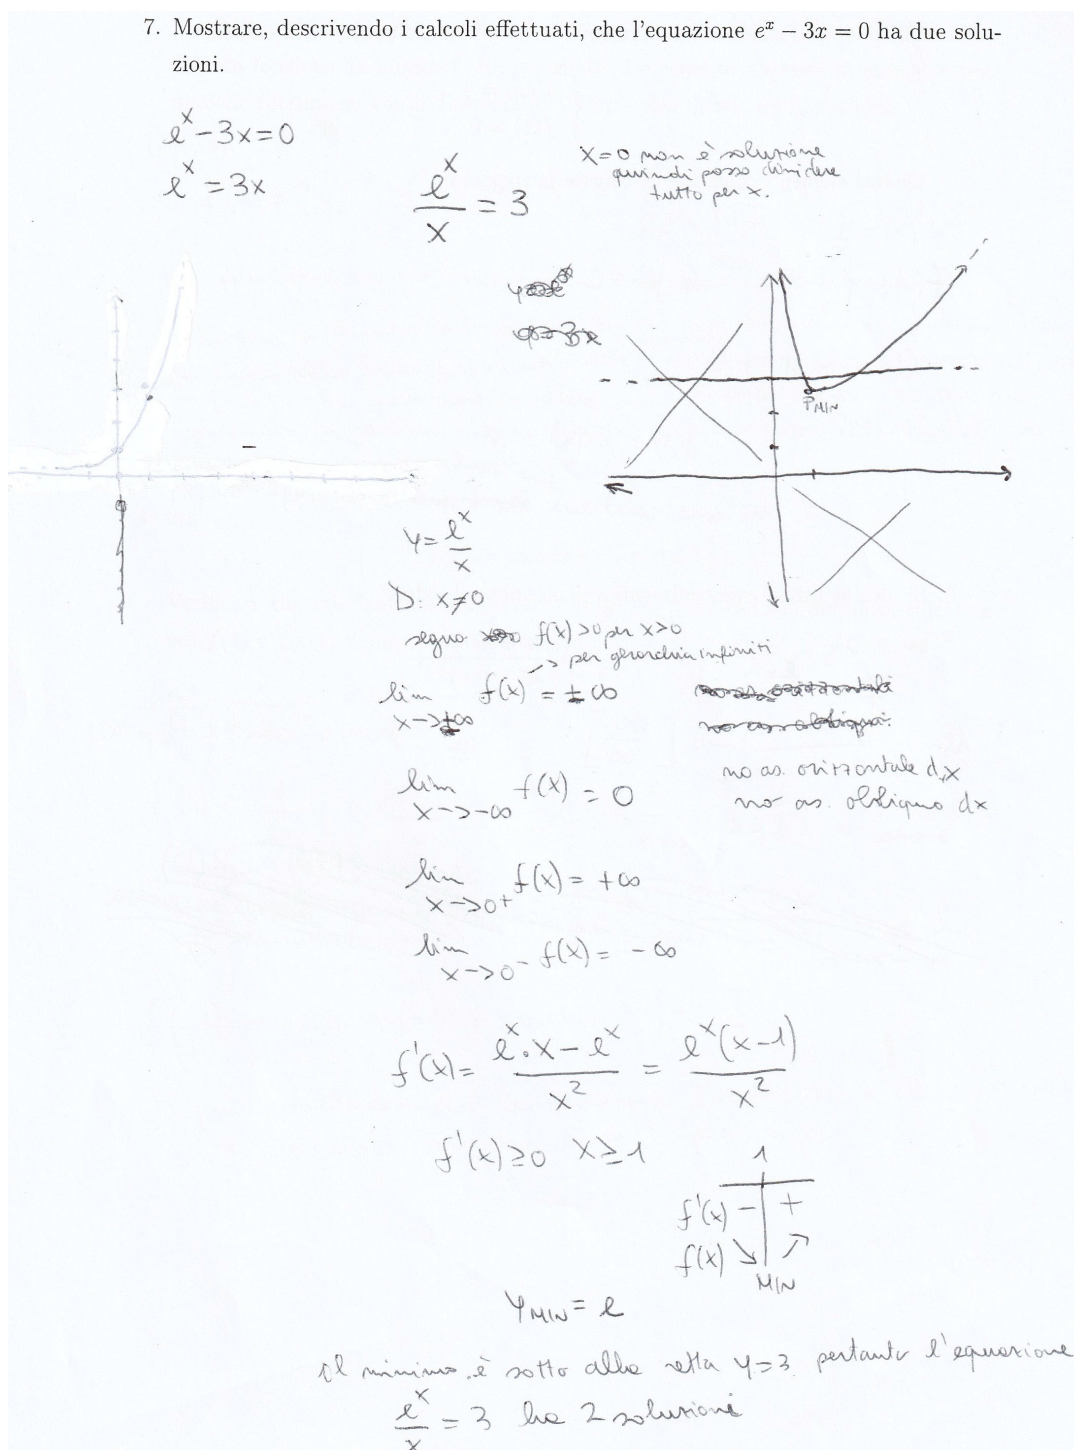 7. Mostrare, descrivendo i calcoli effettuati, che l'equazione e^x − 3x = 0 ha due solu-
zioni.
e^x - 3x = 0
e^x = 3x
e^x/x = 3
x=0 non è soluzione
quindi posso dividere
tutto per x.
P MIN
y = e^x/x
D: x≠0
segno f(x)>0 per x>0
-> per gerarchia infiniti
lim x->+∞ f(x) = +∞
no as. orizzontale dx
no as. obliquo dx
lim x->-∞ f(x) = 0
lim x->0+ f(x) = +∞
lim x->0- f(x) = -∞
f'(x) = (e^x · x - e^x)/x^2 = e^x(x-1)/x^2
f'(x)≥0 x≥1
1
f'(x) - +
f(x) ↘ ↗
MIN
y MIN = e
Il minimo è sotto alla retta y=3 pertanto l'equazione
e^x/x = 3 ha 2 soluzioni